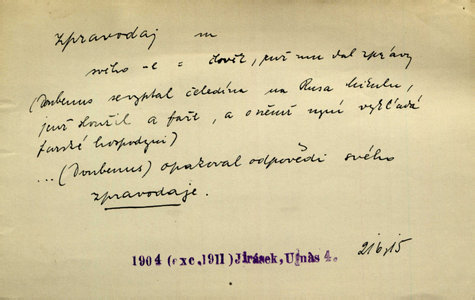 zpravodaj m
svého -e = člověk, jenž mu dal zprávy
(Doubenus se vyptal čeledína na Rusa Mikulu,
jenž sloužil a faře, a o němž nyní vykládá
farské hospodyni)
... (Doubenus) opakoval odpovědi svého
zpravodaje.
1904 (exc. 1911) Jirásek, U nás 4.
21 6, 15